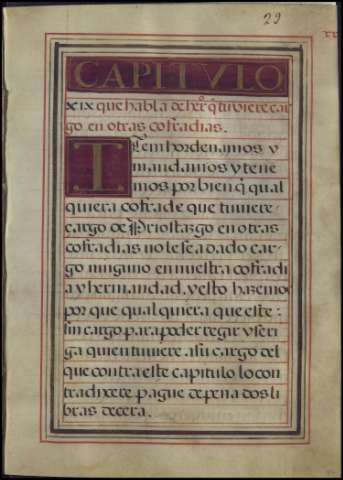 29
CAPITVLO
xix que habla de her̃o q̃ tuviere car
go en otras cofradias.
Item hordenamos y
mandamos y tene
mos por bien q̃ qual
quiera cofrade que tuviere
cargo de Priostazgo en otras
cofradias no le sea dado car-
go ninguno en nuestra cofradi
a y hermandad, y esto hazemos
por que qual quiera que este
sin cargo para poder regir y seri
ga quien tuviere a su cargo del
que contra este capitulo lo con
tradixere pague de pena dos li
bras de cera.